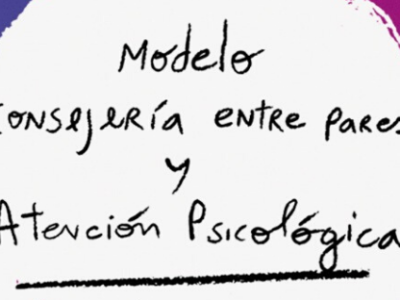 Modelo
Consejería entre pares
y
Atención Psicológica